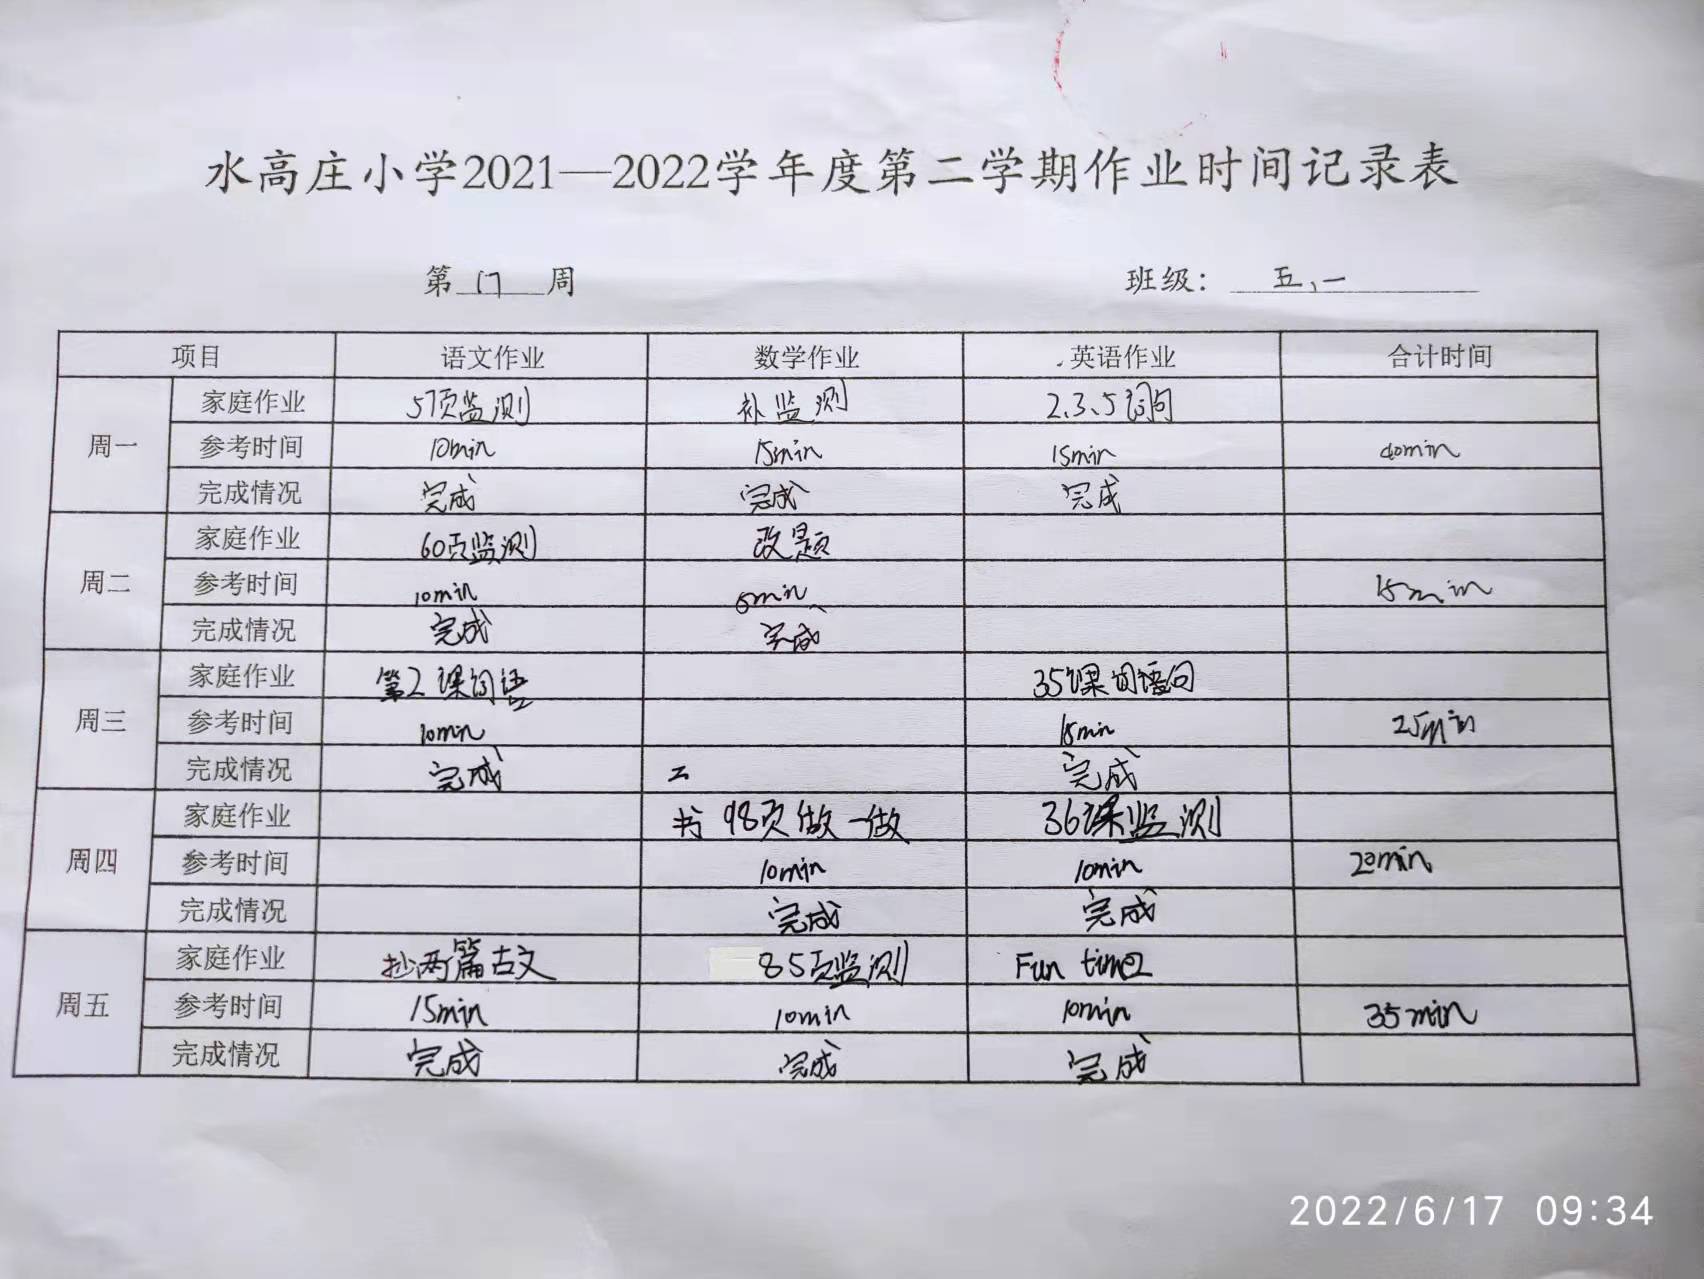 水高庄小学2021—2022学年度第二学期作业时间记录表
第 17 周 班级： 五、一
项目 语文作业 数学作业 英语作业 合计时间
周一
家庭作业 57页监测 补监测 2.3.5词句
参考时间 10min 15min 15min 40min
完成情况 完成 完成 完成
周二
家庭作业 60页监测 改题
参考时间 10min 15min
完成情况 完成 完成
周三
家庭作业 第2课词语 35课词语句
参考时间 10min 15min 25min
完成情况 完成 完成
周四
家庭作业 书98页做一做 36课监测
参考时间 10min 10min 20min
完成情况 完成 完成
周五
家庭作业 抄两篇古文 85页监测 Fun time2
参考时间 15min 10min 10min 35min
完成情况 完成 完成 完成
2022/6/17 09:34